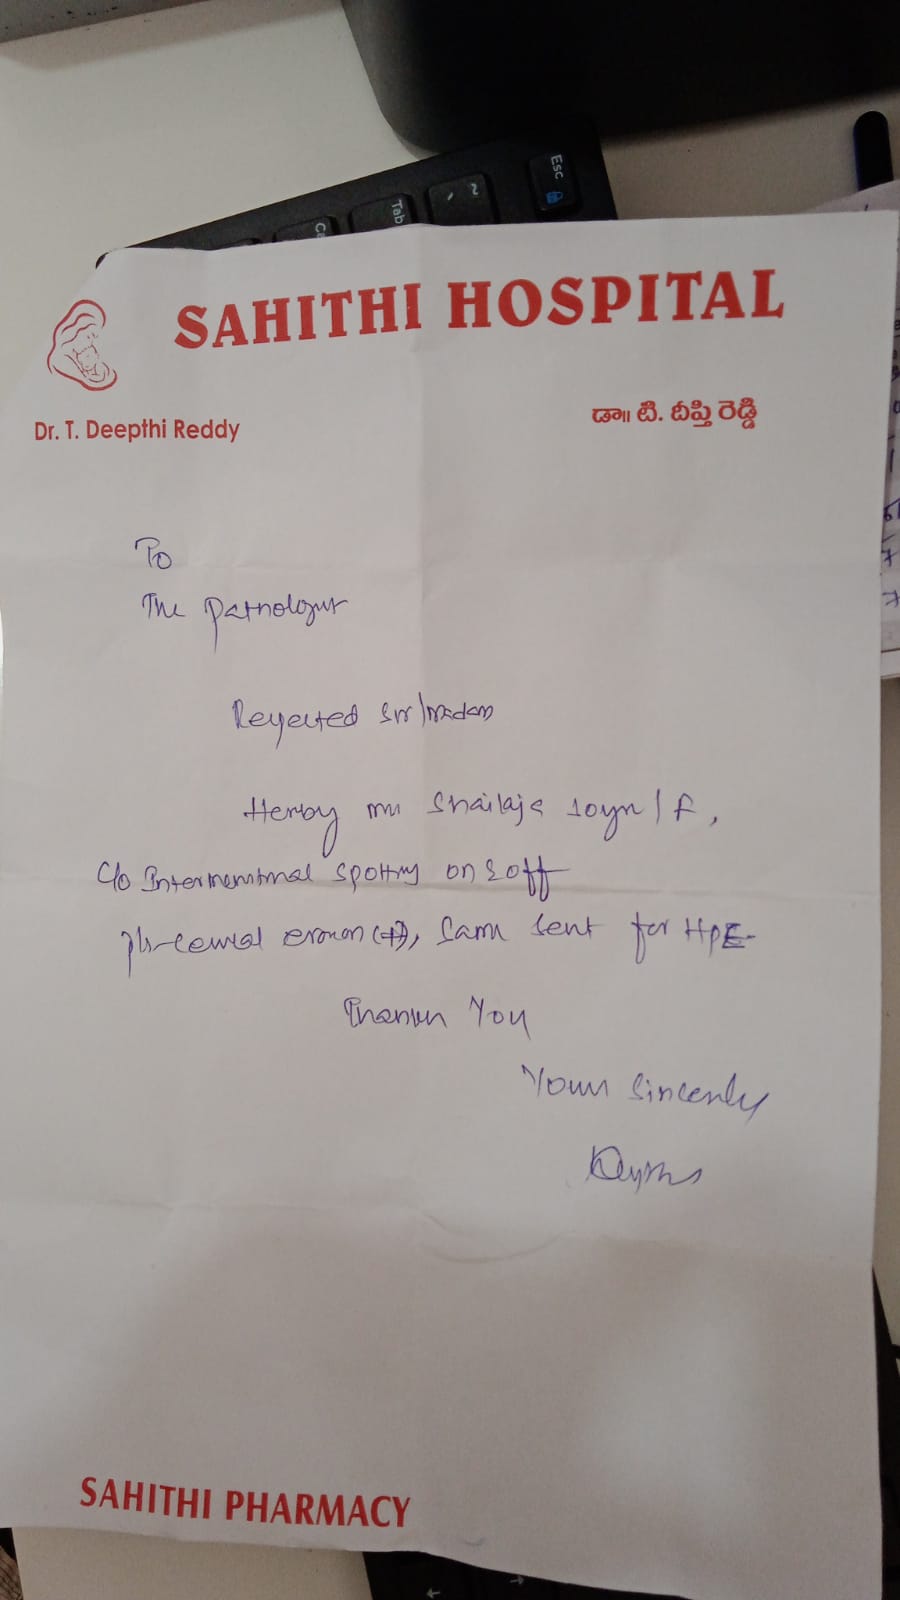 SAHITHI HOSPITAL
Dr. T. Deepthi Reddy
డా॥ టి. దీప్తి రెడ్డి
To
The Pathologist
Respected Sir/madam
Hereby Mrs Shailaja /F,
c/o Intermenstrual spotting on & off
P/h-cervical erosion (+), Same sent for HPE
Thank You
Yours Sincerely
SAHITHI PHARMACY
Esc
~
Tab